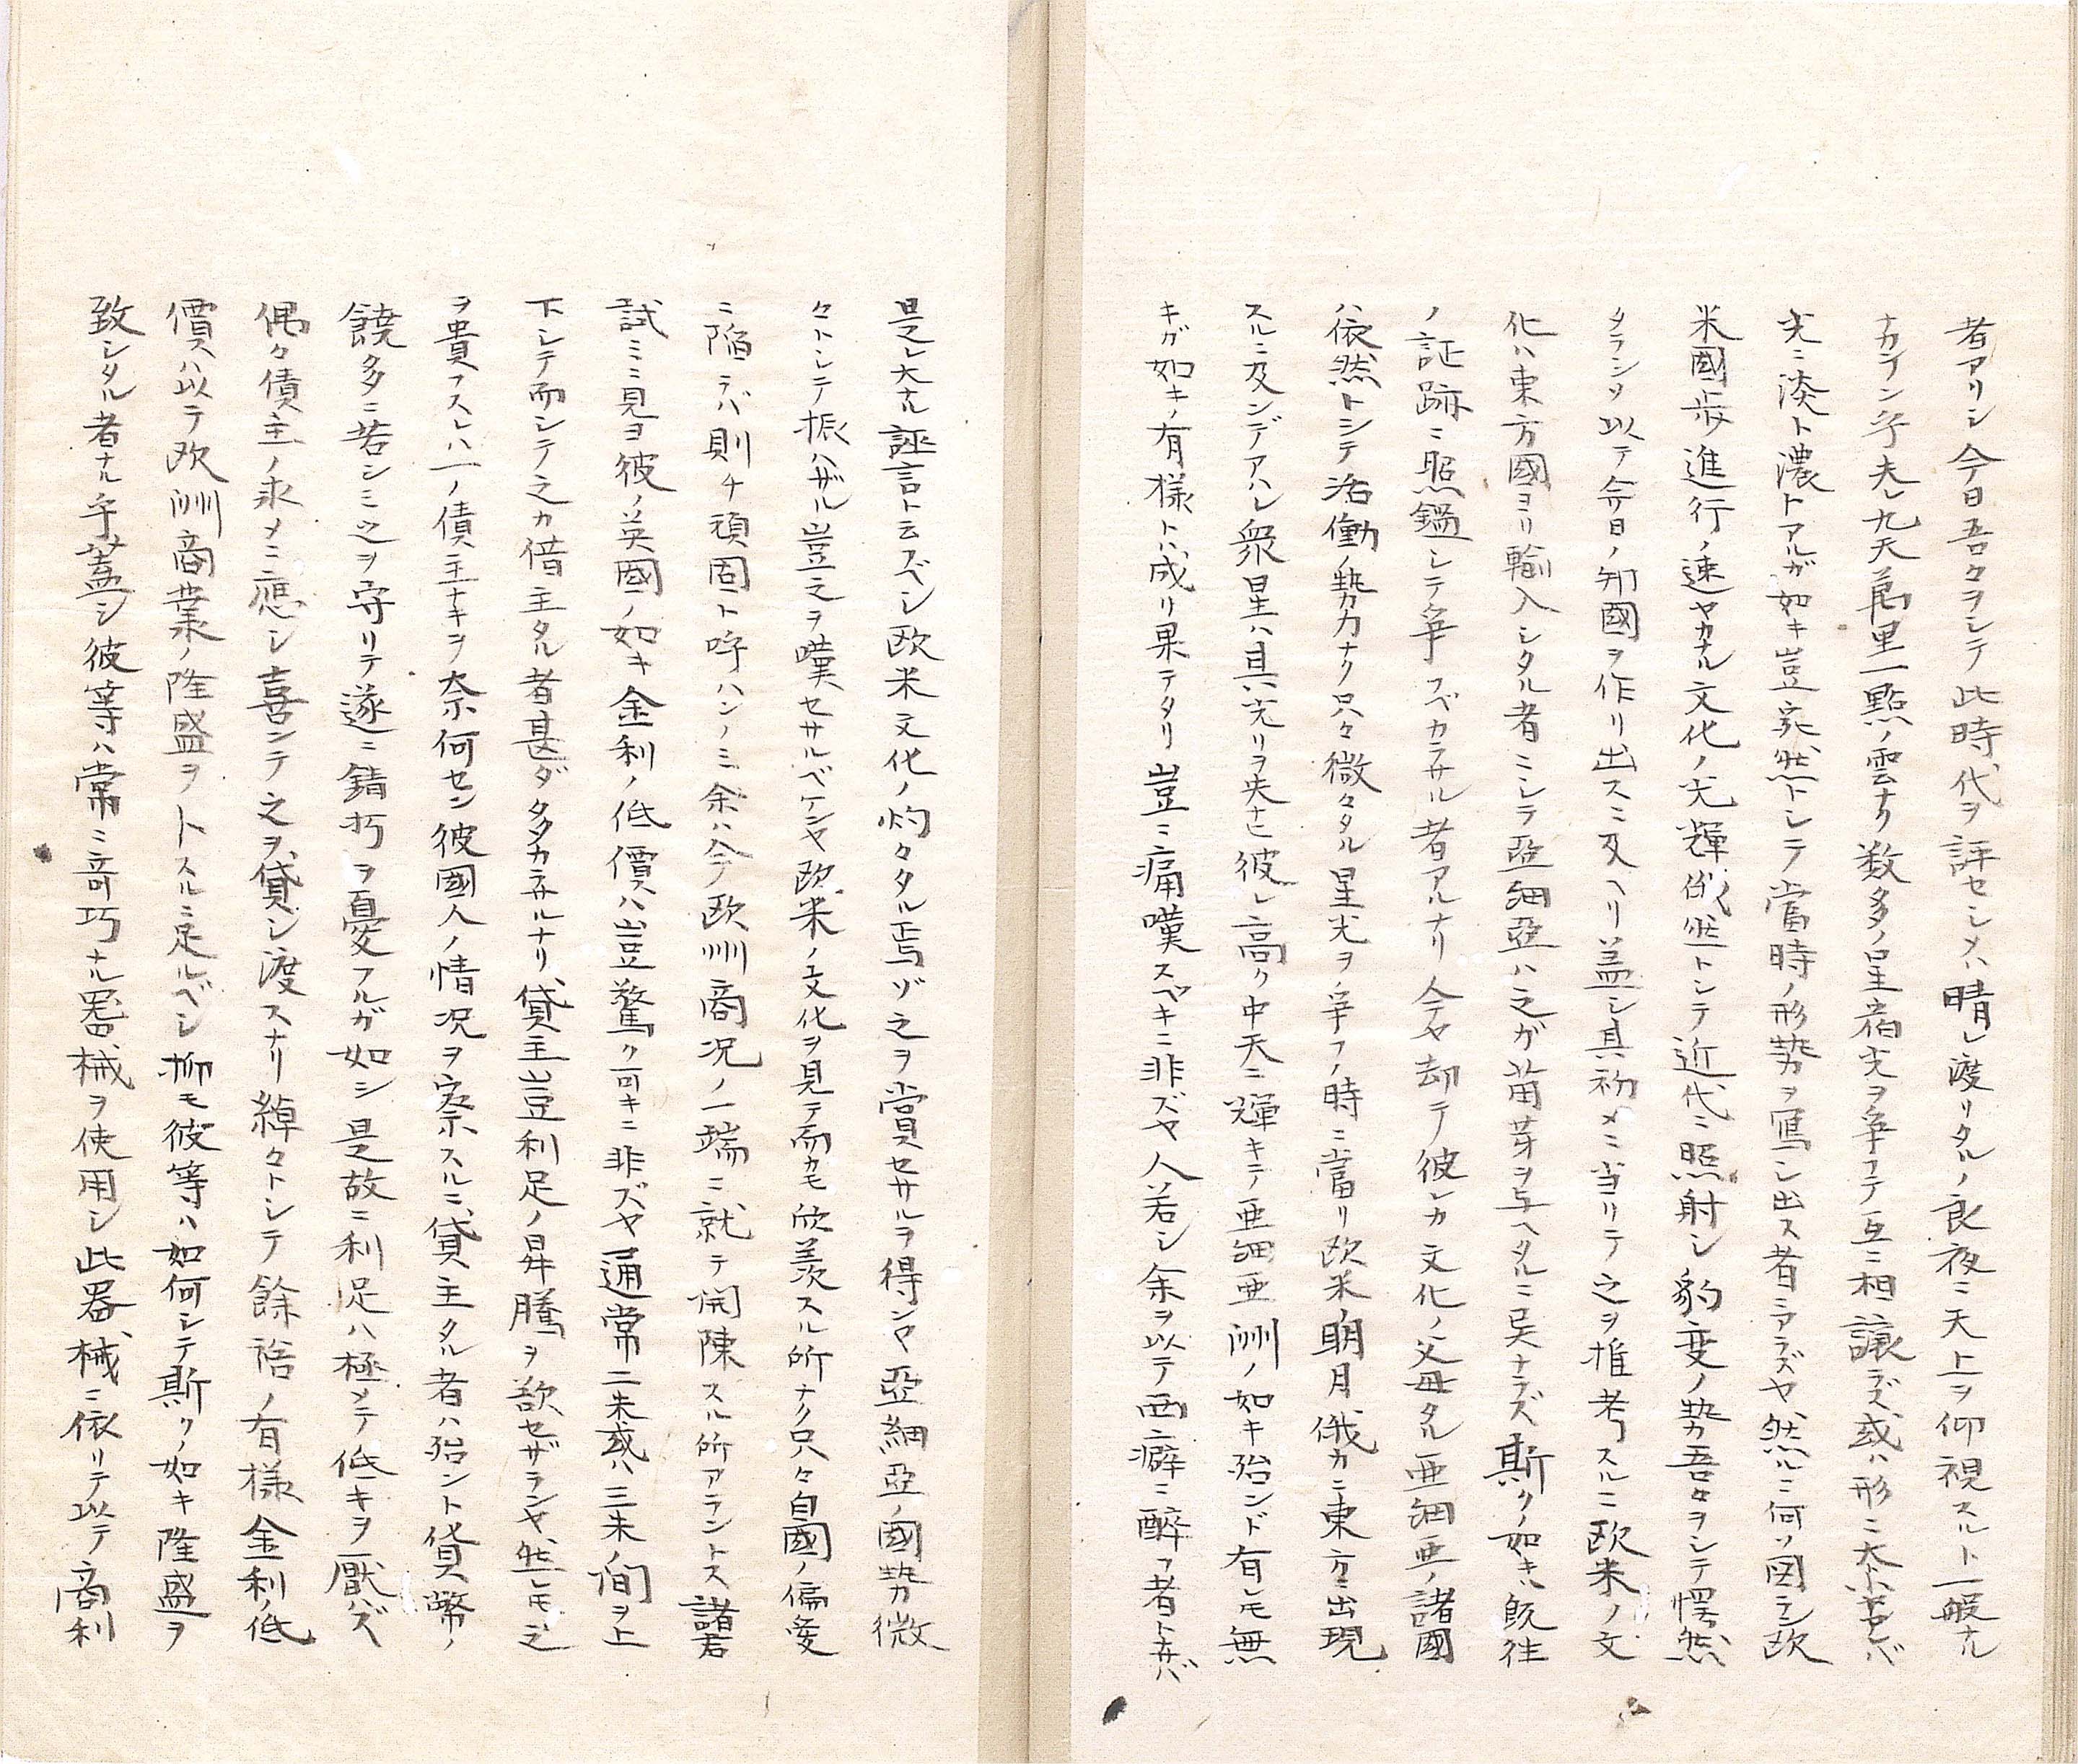 者アリシ今日吾々ヲシテ此時代ヲ評セシメハ晴レ渡リタルノ良夜ニ天上ヲ仰視スルト一般ナル
ナカラン乎夫レ九天萬里一點ノ雲ナク数多ノ星宿光ヲ争フテ互ニ相譲ラズ或ハ形ニ大小
光ニ淡ト濃トアルガ如キ豈宛然トシテ當時ノ形勢ヲ寫シ出ス者ニアラズヤ然ルニ何ソ図ラン欧
米國歩進行ノ速ヤカナル文化ノ光輝俄然トシテ近代ニ照射シ豹変ノ勢吾々ヲシテ愕然
タラシソ以テ今日ノ別國ヲ作リ出スニ及ヘリ蓋シ其初メニ当リテ之ヲ推考スルニ欧米ノ文
化ハ東方國ヨリ輸入シタル者ニシテ亞細亞ハ之ガ苗芽ヲ与ヘタルニ異ナラズ斯クノ如キハ既往
ノ証跡ニ照鑑シテ争フベカラサル者アルナリ今ヤ却テ彼レカ文化ノ父母タル亜細亜ノ諸國
ハ依然トシテ活働ノ勢力ナク只々微々タル星光ヲ争フノ時ニ當リ欧米明月俄カニ東方ニ出現
スルニ及ンデアハレ衆星ハ其光リヲ失セ彼レ高ク中天ニ輝キテ亜細亜洲ノ如キ殆ンド有レモ無
キガ如キノ有様ト成リ果テタリ豈ニ痛嘆スベキニ非ズヤ人若シ余ヲ以テ西癖ニ酔フ者トナサバ
是レ大ナル誣言ト云スベシ欧米文化ノ灼々タル焉ゾ之ヲ賞セサルヲ得ンヤ亞細亞ノ國勢微
々トシテ振ハザル豈之ヲ嘆セサルベケンヤ欧米ノ文化ヲ見テ而カモ欣羨スル所ナク只々自國ノ偏愛
ニ陥ラバ則チ頑固ト呼ハンノミ余ハ今欧洲商况ノ一端ニ就テ開陳スル所アラントス諸君
試ミニ見ヨ彼ノ英國ノ如キ金利ノ低價ハ豈驚ク可キニ非ズヤ通常二朱或ハ三朱間ヲ上
下シテ而シテ之カ借主タル者甚ダ多カラサルナリ貸主豈利足ノ昇騰ヲ欲セザランヤ然レモ之
ヲ貴フスレハ一ノ債主ナキヲ奈何セン彼國人ノ情况ヲ察スルニ貸主タル者ハ殆ント貨幣ノ
饒多ニ苦シミ之ヲ守リテ遂ニ錆朽ヲ憂フルガ如シ是故ニ利足ハ極メテ低キヲ厭ハズ
偶々債主ノ求メニ應シ喜ンテ之ヲ貸シ渡スナリ綽々トシテ餘裕ノ有様金利ノ低
價ハ以テ欧洲商業ノ隆盛ヲトスルニ足ルベシ抑モ彼等ハ如何シテ斯クノ如キ隆盛ヲ
致シタル者ナル乎蓋シ彼等ハ常ニ奇巧ナル器械ヲ使用シ此器械ニ依リテ以テ商利